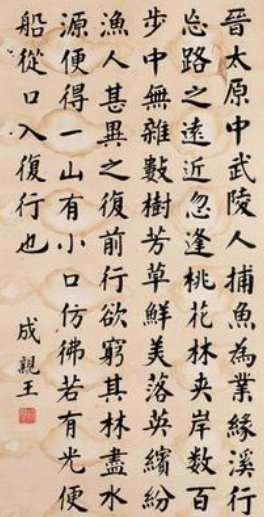 晉太原中武陵人捕魚為業緣溪行
忘路之遠近忽逢桃花林夾岸数百
步中無雜數樹芳草鮮美落英繽紛
漁人甚異之復前行欲窮其林盡水
源便得一山有小口仿佛若有光便
船從口入復行也
成親王